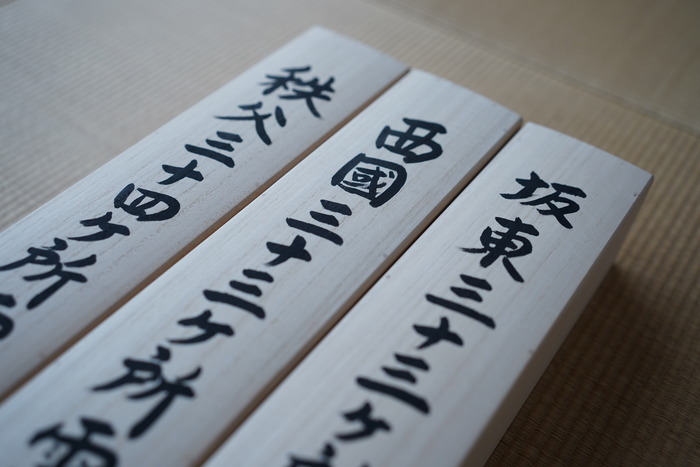 坂東三十三ケ所
西國三十三ケ所
秩父三十四ケ所